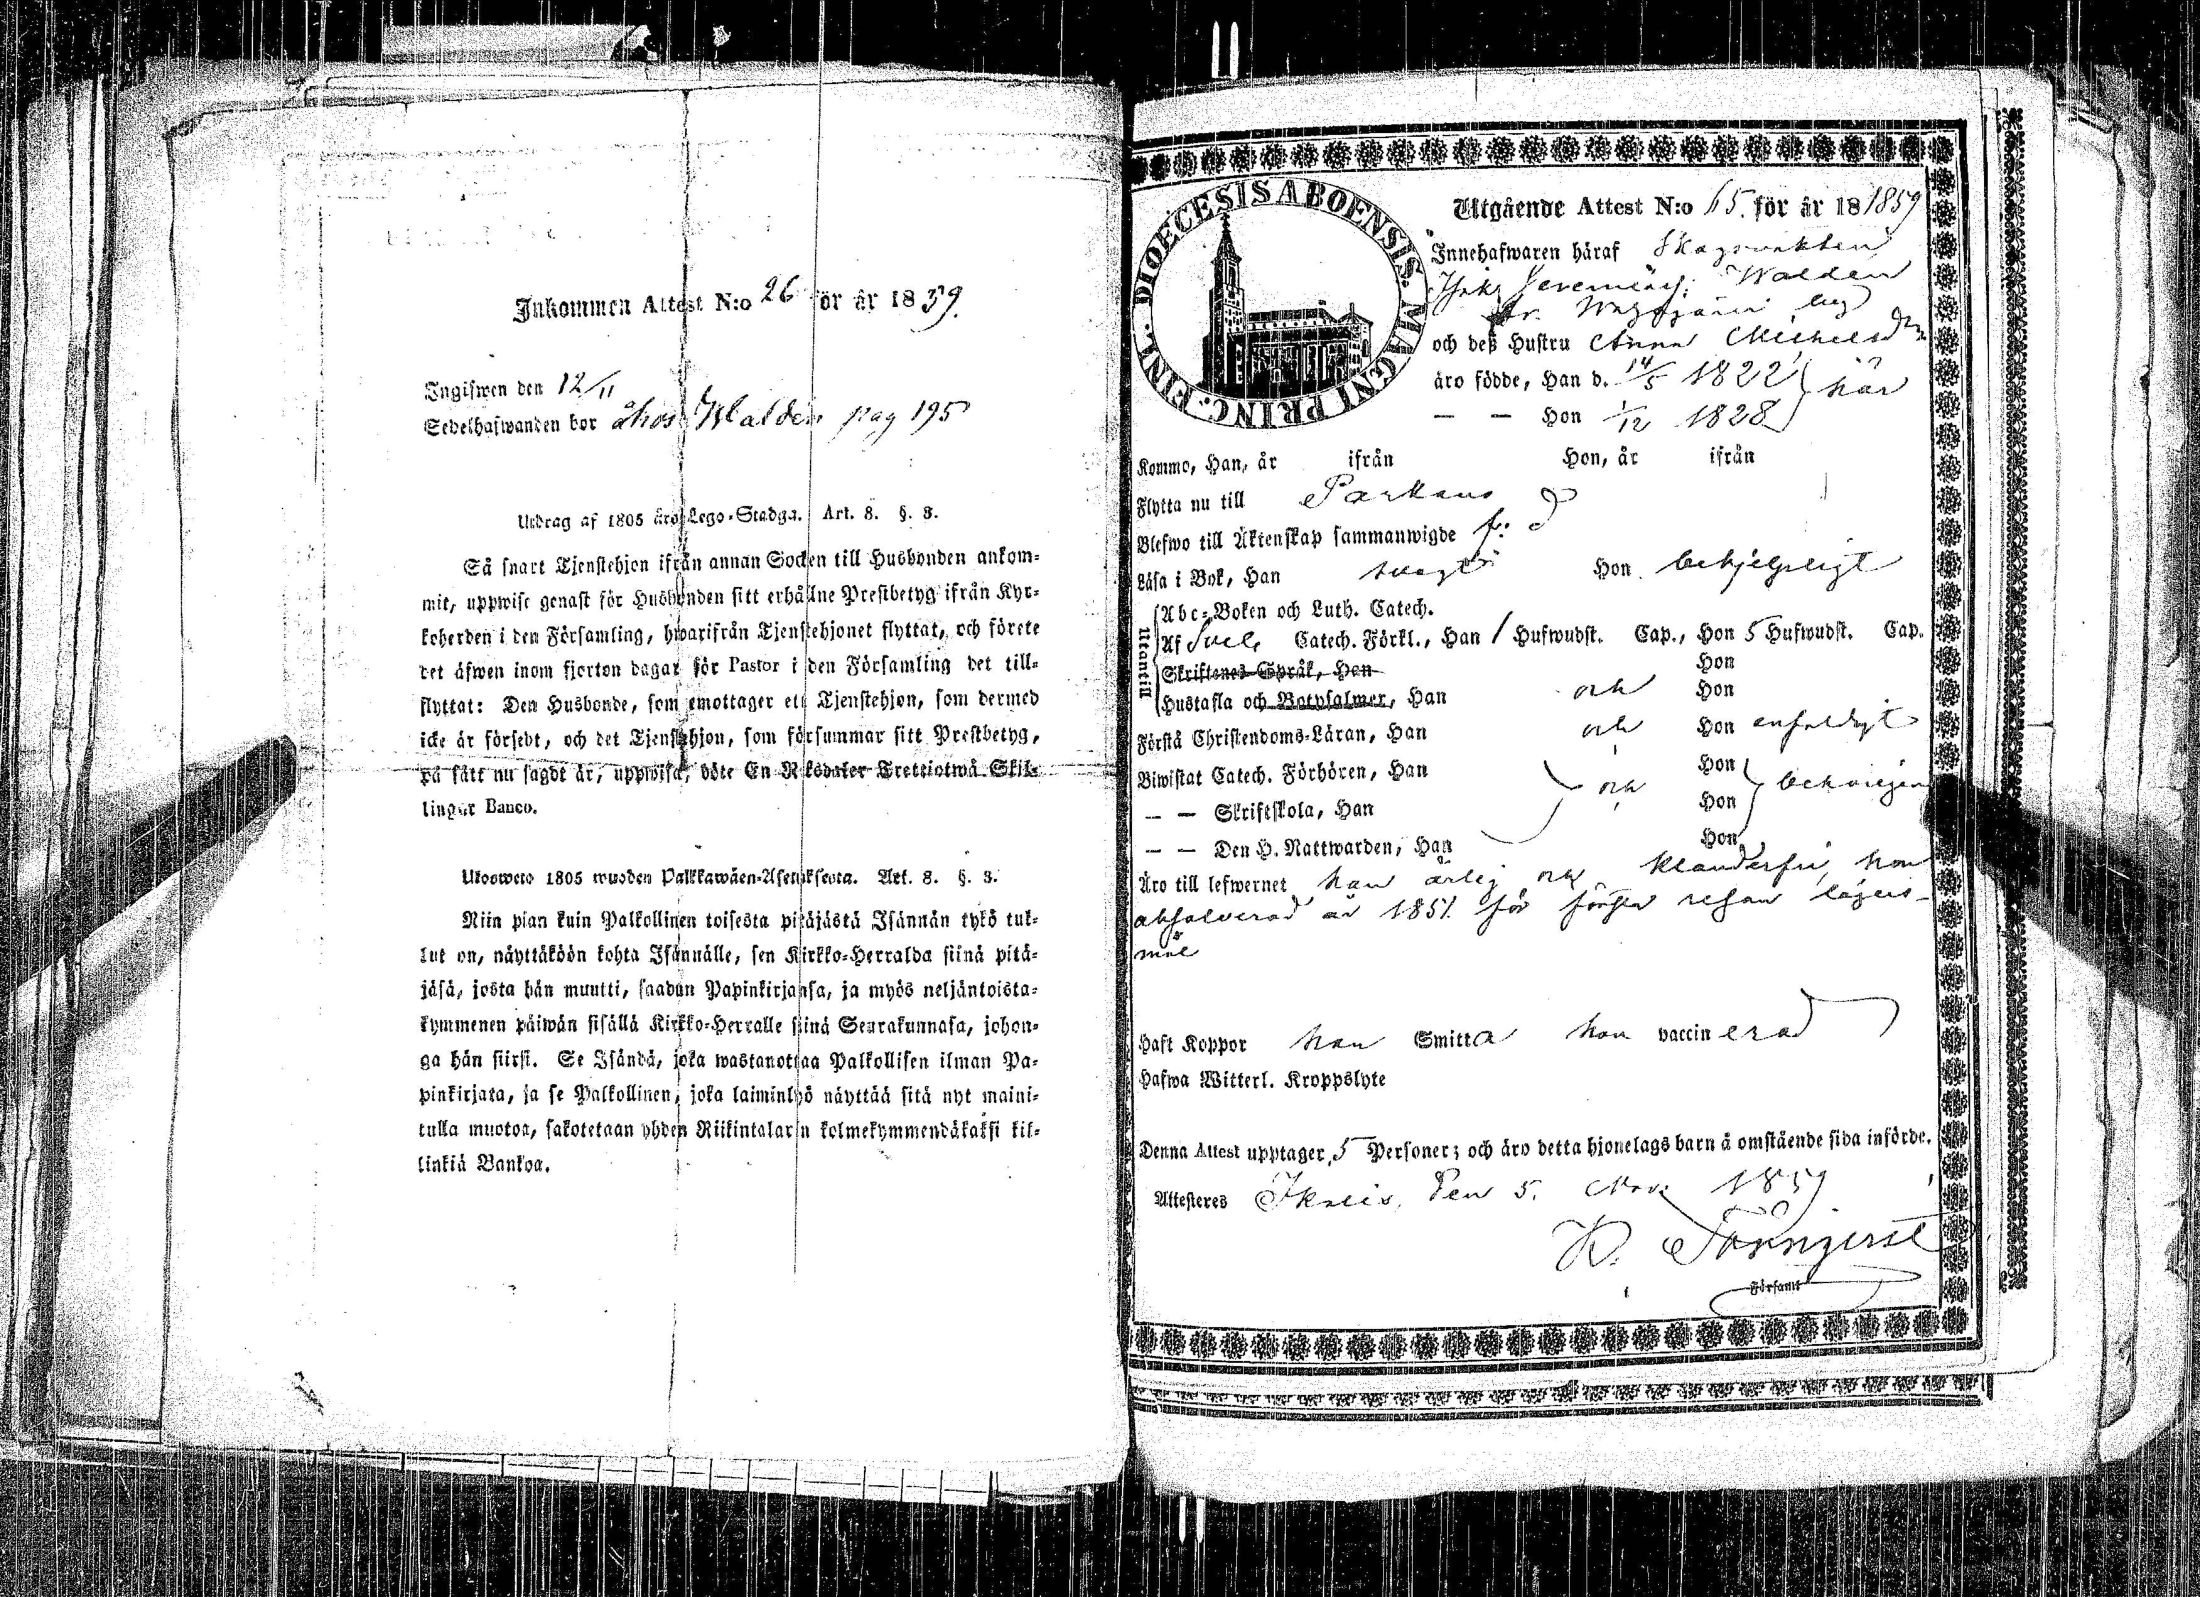 Inkommen Attest N:o 26 för år 1859.
Ingifwen den 12/11
Sedelhafwanden bor åhos Walden pag 195
Utdrag af 1805 års Lego-Stadga. Art. 8. §. 3.
Så snart Tjenstehjon ifrån annan Socken till Husbonden ankom-
mit, uppwise genast för Husbonden sitt erhållne Prestbetyg ifrån Kyr-
koherden i den Församling, hwarifrån Tjenstehjonet flyttat, och förete
det äfwen inom fjorton dagar för Pastor i den Församling det till-
flyttat: Den Husbonde, som emottager ett Tjenstehjon, som dermed
icke är försedt, och det Tjenstehjon, som försummar sitt Prestbetyg,
på sätt nu sagdt är, uppwisa, böte En Riksdaler Trettiotwå Skil-
lingar Banco.
Ulosweto 1805 wuoden Palkkawäen-Asetuksesta. Art. 8. §. 3.
Niin pian kuin Palkollinen toisesta pitäjästä Isännän tykö tul-
lut on, näyttäköön kohta Isännälle, sen Kirkko-Herralda siinä pitä-
jäsä, josta hän muutti, saadun Papinkirjansa, ja myös neljäntoista-
kymmenen päiwän sisällä Kirkko-Herralle siinä Seurakunnasa, johon-
ga hän siirsi. Se Isändä, joka wastanottaa Palkollisen ilman Pa-
pinkirjata, ja se Palkollinen, joka laiminlyö näyttää sitä nyt maini-
tulla muotoa, sakotetaan yhden Riikintalarin kolmekymmendäkaksi kil-
linkiä Bankoa.
DIOECESIS ABOENSIS. MAGNI PRINC. FINL.
Utgående Attest N:o 65. för år 18 1859
Innehafwaren häraf Skogsvakten
Isak Jeremiäs: Walden
och deß Hustru Anna Michelsdr
äro födde, Han d. 14/5 1822 } här
— — Hon 1/12 1828
Kommo, Han, år ifrån Hon, år ifrån
Flytta nu till Parkano
Blefwo till Äktenskap sammanwigde
Läsa i Bok, Han svagt Hon behjelpligt
Utantill
Abc-Boken och Luth. Catech.
Af Svel. Catech. Förkl., Han 1 Hufwudst. Cap., Hon 5 Hufwudst. Cap.
Skriftenes Språk, Han Hon
Hustafla och Botpsalmer, Han och Hon
Förstå Christendoms-Läran, Han och Hon enfaldigt
Biwistat Catech. Förhören, Han Hon
— — Skriftskola, Han och Hon behörigen
— — Den H. Nattwarden, Han Hon
Äro till lefwernet han ärlig och klanderfri, hon
absolverad år 1851 för första resan lägers-
mål
Haft Koppor han Smitta hon vaccinerad
Hafwa Witterl. Kroppslyte
Denna Attest upptager 5 Personer; och äro detta hjonelags barn å omstående sida införde.
Attesteres Ikalis, den 5. Nov: 1859
Församl